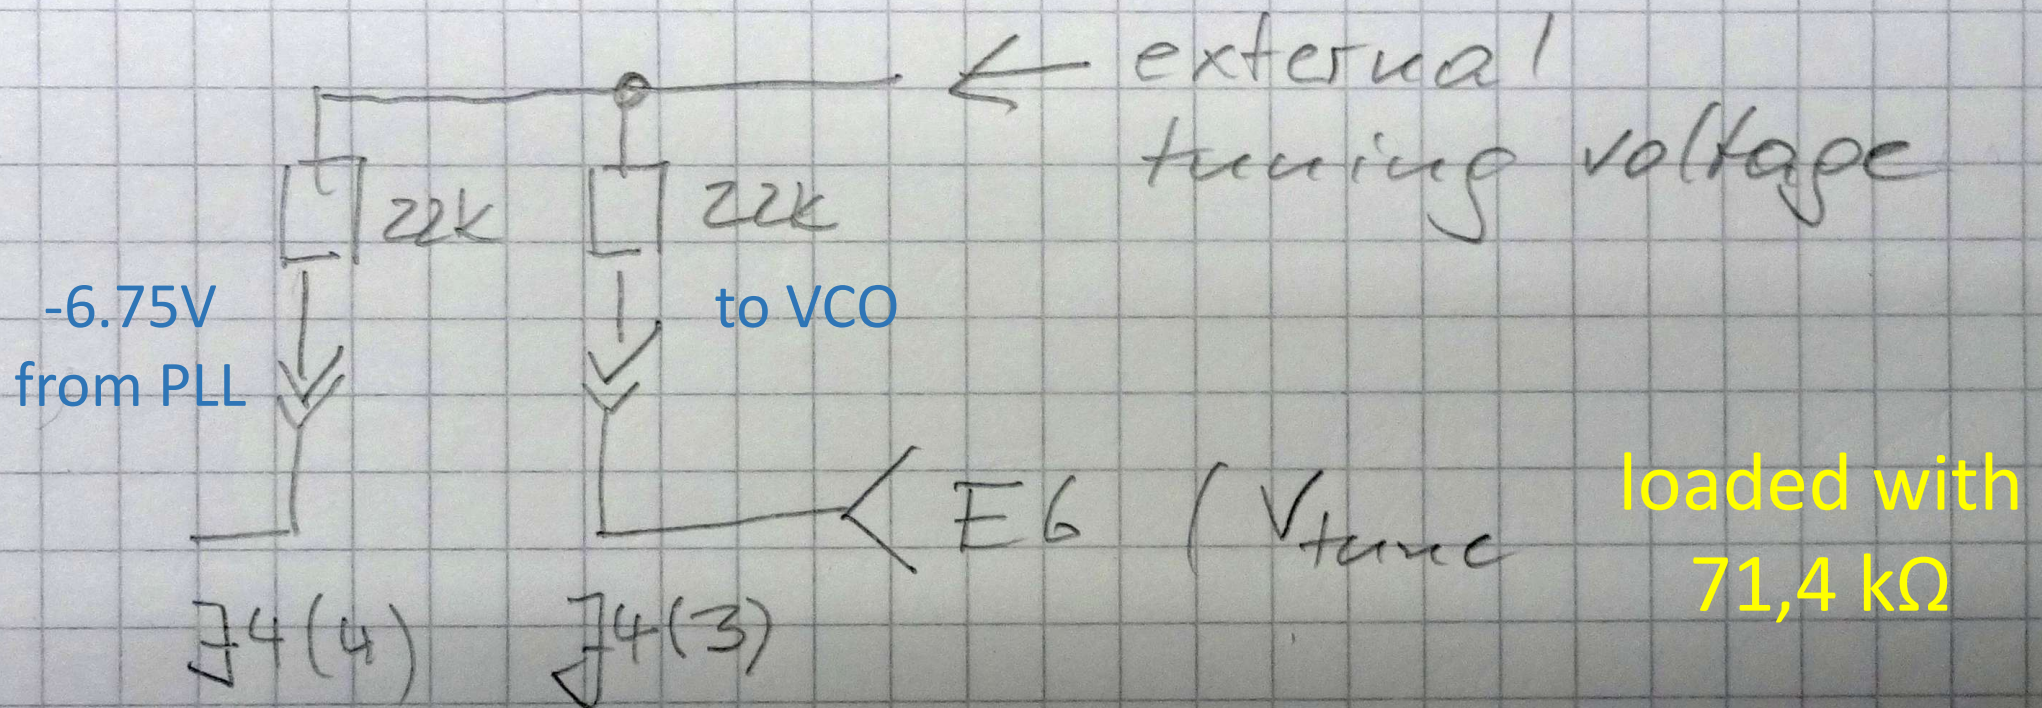 external
tuning voltage
22k
22k
-6.75V
from PLL
to VCO
E6 (Vtune
loaded with
71,4 kΩ
J4(4)
J4(3)